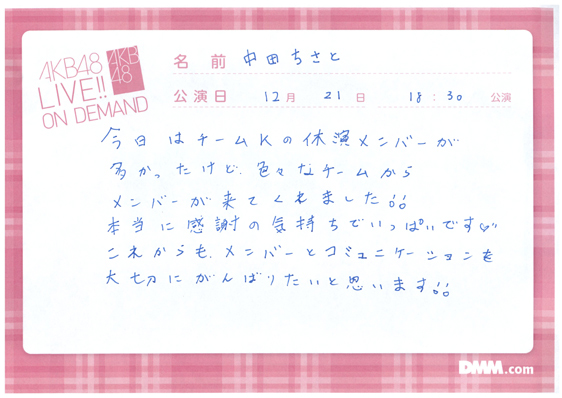 AKB48
LIVE!!
ON DEMAND
AKB
48
名 前 中田ちさと
公演日 12月 21日 18:30 公演
今日はチームKの休演メンバーが
多かったけど、色々なチームから
メンバーが来てくれました!!
本当に感謝の気持ちでいっぱいです♡
これからも、メンバーとコミュニケーションを
大切にがんばりたいと思います!!
DMM.com